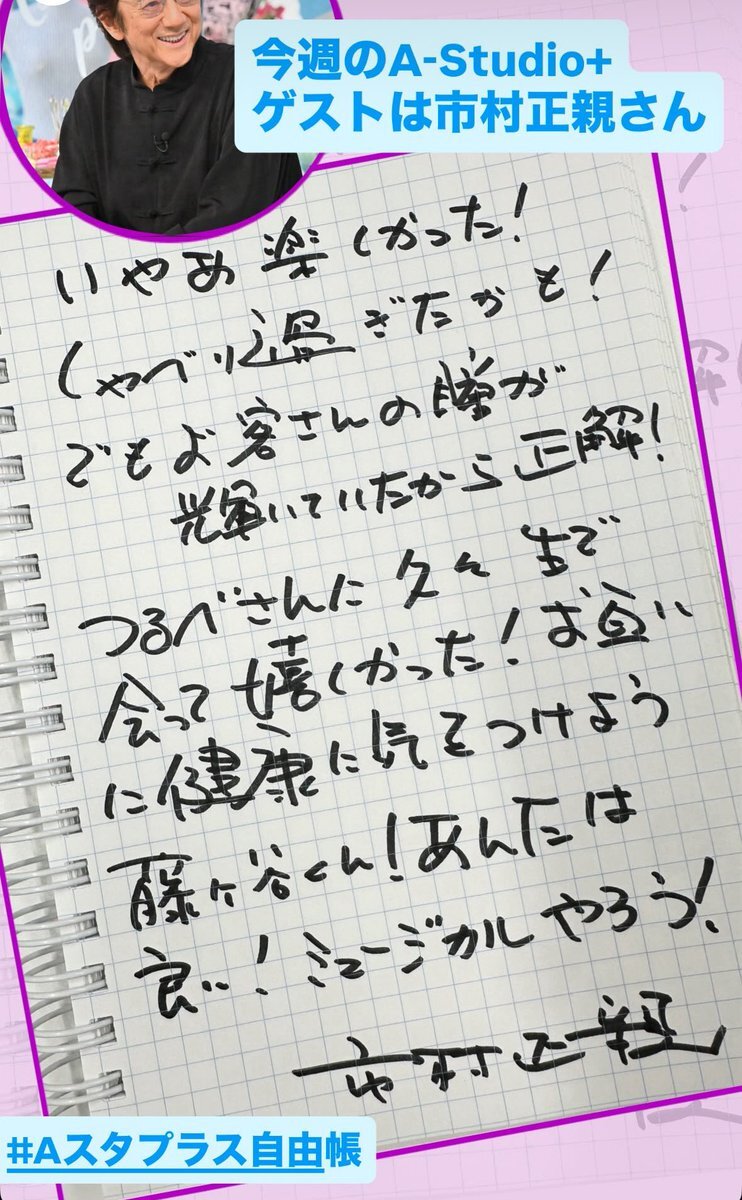 今週のA-Studio+
ゲストは市村正親さん
いやぁ楽しかった!
しゃべり過ぎたかも!
でもお客さんの瞳が
輝いていたから正解!
つるべさんに久々まで
会って嬉しかった!お互い
に健康に気をつけよう
藤ヶ谷くん!あんたは
良い!ミュージカルやろう!
市村正親
#Aスタプラス自由帳